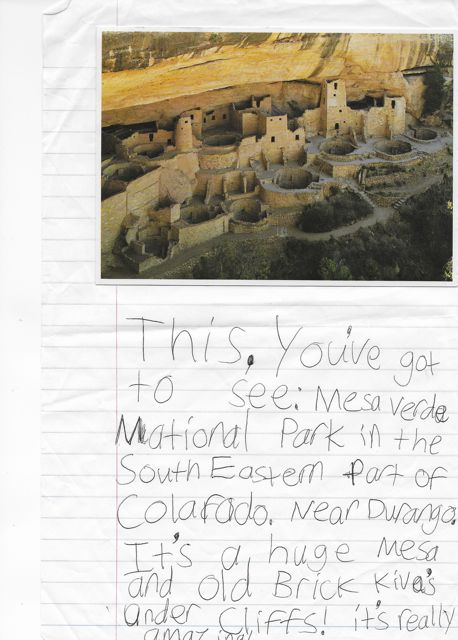 This, You've got
to see: Mesa verde
National Park in the
South Eastern Part of
Colarado. Near Durango.
It's a huge Mesa
and old Brick Kivas
ander Cliffs! it's really
amazing!